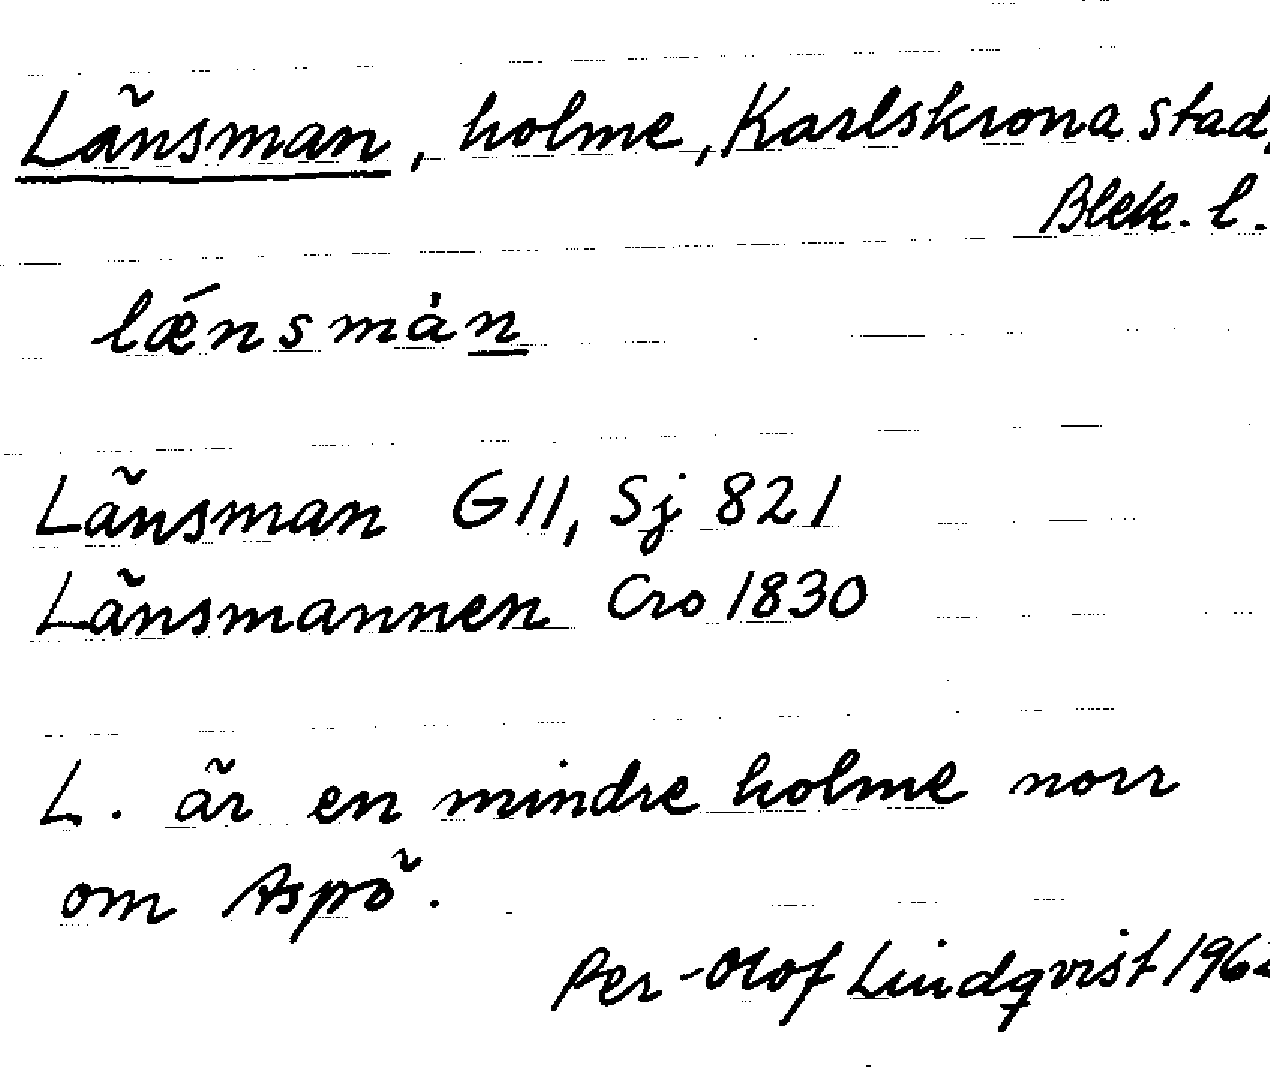 Länsman, holme, Karlskrona stad,
Blek. l.
lǽnsmàn
Länsman G11, Sj 821
Länsmannen Cro 1830
L. är en mindre holme norr
om Aspö.
Per-Olof Lindqvist